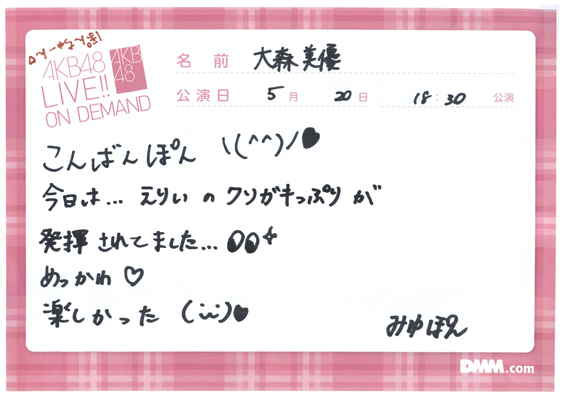 ぽんちゃーん♡
AKB48
LIVE!!
ON DEMAND
AKB
48
名前 大森美優
公演日 5月 20日 18:30 公演
こんばんぽん \(^^)/♥
今日は... えりぃ の クソガキっぷり が
発揮 されてました...
めっかわ♡
楽しかった (¨̮)♥
みゆぽん
DMM.com